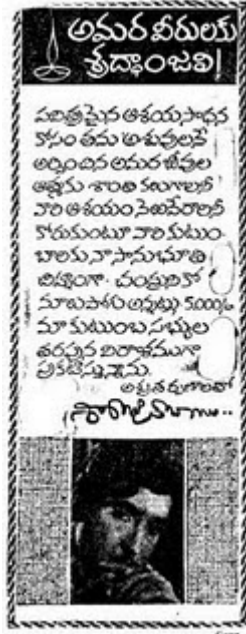 అమర వీరులకు
శ్రద్ధాంజలి!
పవిత్రమైన ఆశయసాధన
కోసం తమ అశువులనే
అర్పించిన అమర జీవుల
ఆత్మకు శాంతి కలుగాలనీ
వారి ఆశయం నెరవేరాలనీ
కోరుకుంటూ వారి కుటుం-
బాలకు, నా సానుభూతి
చిహ్నంగా - చంద్రునికో
నూలుపోగు అన్నట్లు 5,000/-
మా కుటుంబ సభ్యుల
తరపున విరాళముగా
ప్రకటిస్తున్నాను.
అశ్రుతర్పణాలతో